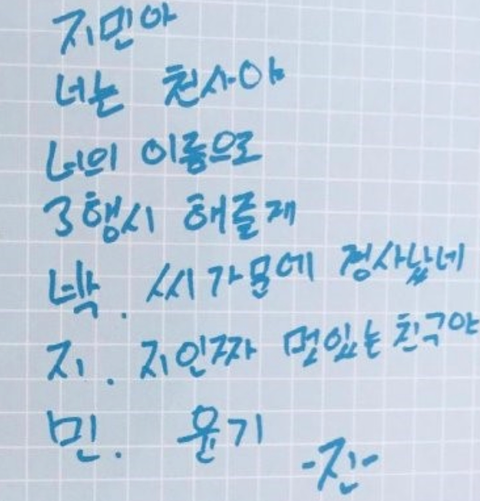 지민아
너는 천사야
너의 이름으로
3행시 해줄게
박. 씨가문에 경사났네
지. 지인짜 멋있는 친구야
민. 윤기
-진-